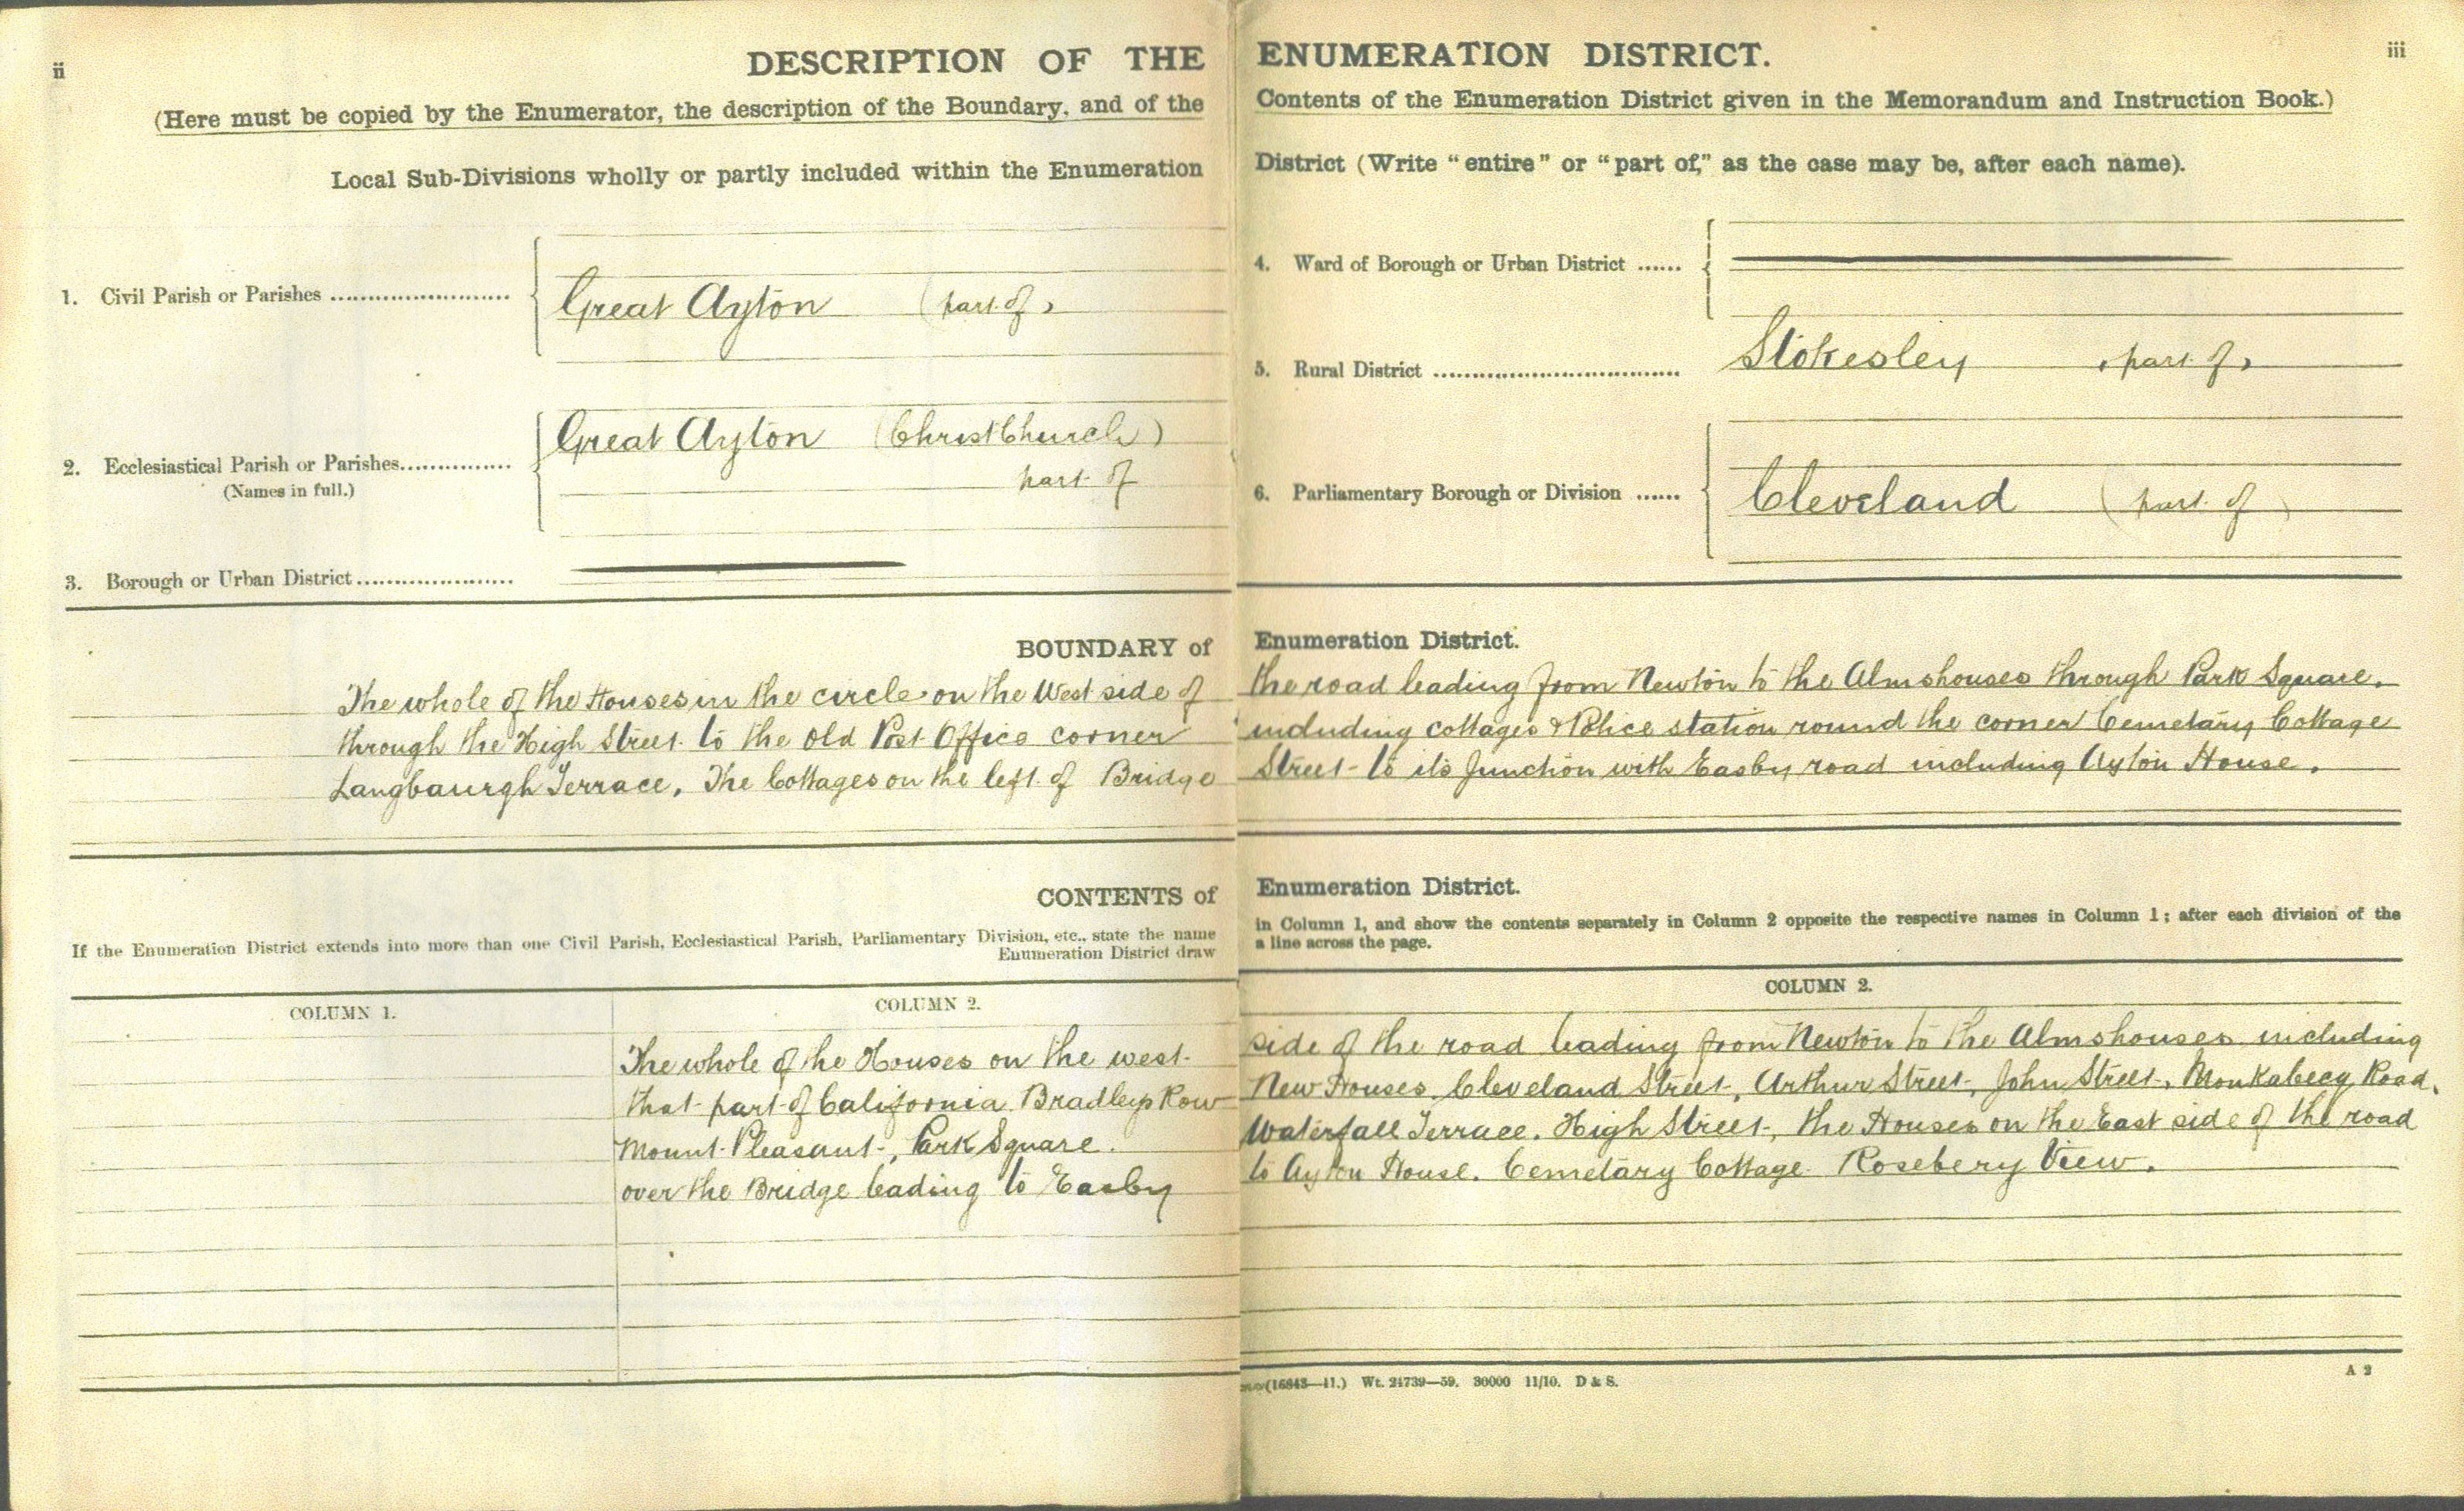 ii
DESCRIPTION OF THE ENUMERATION DISTRICT.
iii
(Here must be copied by the Enumerator, the description of the Boundary, and of the Contents of the Enumeration District given in the Memorandum and Instruction Book.)
Local Sub-Divisions wholly or partly included within the Enumeration District (Write "entire" or "part of," as the case may be, after each name).
1. Civil Parish or Parishes
Great Ayton (part of)
2. Ecclesiastical Parish or Parishes
(Names in full.)
Great Ayton (Christ Church)
part of
3. Borough or Urban District
4. Ward of Borough or Urban District
5. Rural District
Stokesley (part of)
6. Parliamentary Borough or Division
Cleveland (part of)
BOUNDARY of Enumeration District.
The whole of the Houses in the circle on the West side of the road leading from Newton to the Almshouses through Park Square.
through the High Street to the old Post Office corner including cottages & Police station round the corner Cemetary Cottage
Langbaurgh Terrace. The Cottages on the left of Bridge Street to its Junction with Easby road including Ayton House.
CONTENTS of Enumeration District.
If the Enumeration District extends into more than one Civil Parish, Ecclesiastical Parish, Parliamentary Division, etc., state the name in Column 1, and show the contents separately in Column 2 opposite the respective names in Column 1; after each division of the
Enumeration District draw a line across the page.
COLUMN 1. COLUMN 2. COLUMN 2.
The whole of the Houses on the west side of the road leading from Newton to the Almshouses including
that part of California Bradleys Row New Houses, Cleveland Street, Arthur Street, John Street, Monkabecq Road,
Mount Pleasant, Park Square. Waterfall Terrace. High Street, the Houses on the East side of the road
over the Bridge leading to Easby to Ayton House. Cemetary Cottage Rosebery View.
(16843—11.) Wt. 24739—59. 30000 11/10. D & S.
A 2